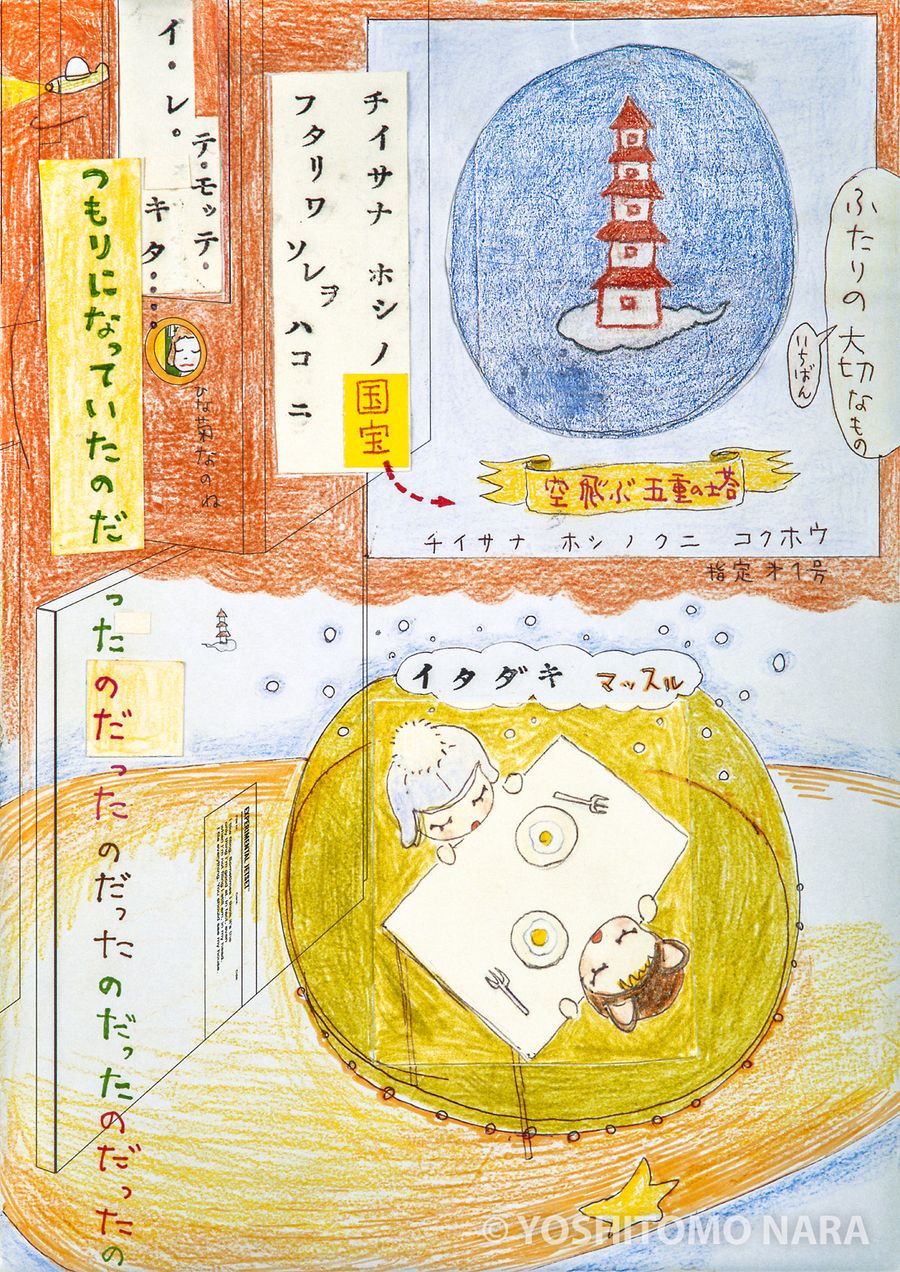 チイサナ ホシノ
国宝
フタリワ ソレヲ ハコニ
イ・レ。
テ・モッテ・
キタ・・・・
つもりになっていたのだ
ひな菊なのね
ふたりの大切なもの
いちばん
空飛ぶ五重の塔
チイサナ ホシノクニ コクホウ
指定オ1号
イタダキ マッスル
ったのだったのだったのだったのだったの
EXPERIMENTAL JETSET
© YOSHITOMO NARA